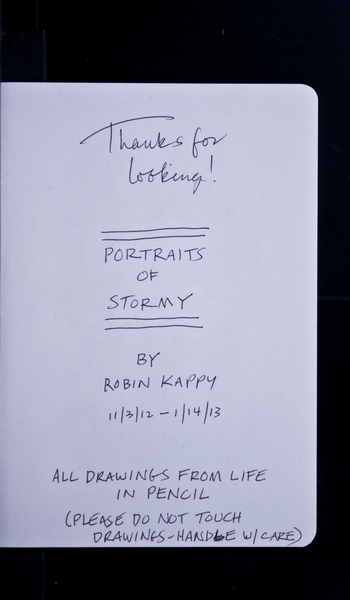 Thanks for
looking!
PORTRAITS
OF
STORMY
BY
ROBIN KAPPY
11/3/12 - 1/14/13
ALL DRAWINGS FROM LIFE
IN PENCIL
(PLEASE DO NOT TOUCH
DRAWINGS-HANDLE W/ CARE)